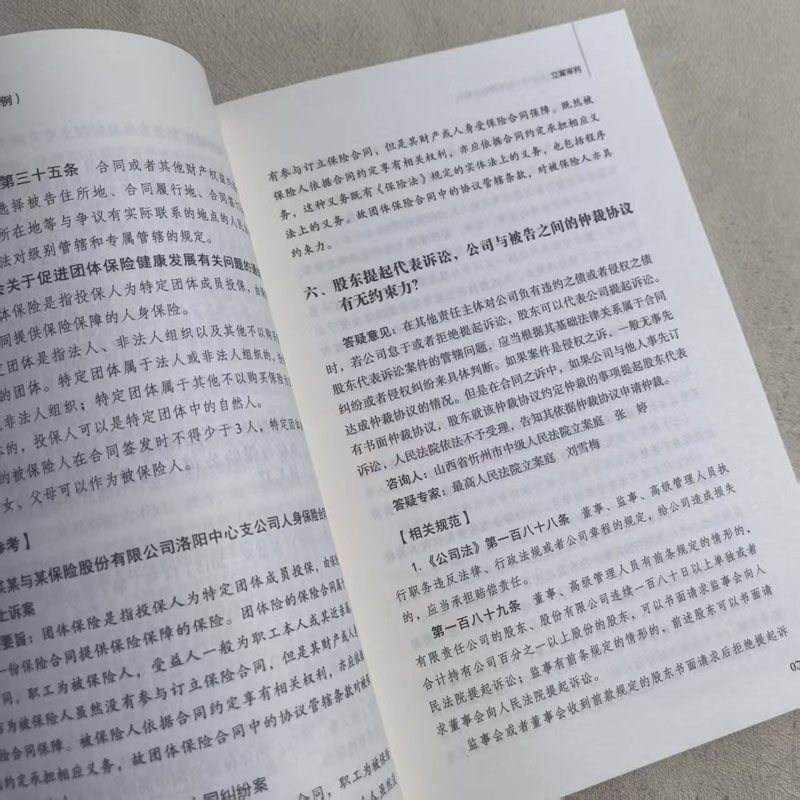 例）
第三十五条 合同或者其他财产权益纠
选择被告住所地、合同履行地、合同签
所在地等与争议有实际联系的地点的人民
法对级别管辖和专属管辖的规定。
关于促进团体保险健康发展有关问题的通
体保险是指投保人为特定团体成员投保，由
同提供保险保障的人身保险。
定团体是指法人、非法人组织以及其他不以购买
的团体。特定团体属于法人或非法人组织的，
非法人组织；特定团体属于其他不以购买保险
的，投保人可以是特定团体中的自然人。
的被保险人在合同签发时不得少于3人，特定团
女、父母可以作为被保险人。
参考】
某某与某保险股份有限公司洛阳中心支公司人身保险合
上诉案
要旨：团体保险是指投保人为特定团体成员投保，由保
一份保险合同提供保险保障的保险。团体保险的保险合同
同，职工为被保险人，受益人一般为职工本人或其近亲
作为被保险人虽然没有参与订立保险合同，但是其财产或人
险合同保障。被保险人依据合同约定享有相关权利，亦应依
约定承担相应义务，故团体保险合同中的协议管辖条款对被
同纠纷案
合同，职工为被保
立案审判
有参与订立保险合同，但是其财产或人身受保险合同保障。既然被
保险人依据合同约定享有相关权利，亦应依据合同约定承担相应义
务，这种义务既有《保险法》规定的实体法上的义务，也包括程序
法上的义务。故团体保险合同中的协议管辖条款，对被保险人亦具
约束力。
六、股东提起代表诉讼，公司与被告之间的仲裁协议
有无约束力？
答疑意见：在其他责任主体对公司负有违约之债或者侵权之债
时，若公司怠于或者拒绝提起诉讼，股东可以代表公司提起诉讼。
股东代表诉讼案件的管辖问题，应当根据其基础法律关系属于合同
纠纷或者侵权纠纷来具体判断。如果案件是侵权之诉，一般无事先
达成仲裁协议的情况。但是在合同之诉中，如果公司与他人事先订
有书面仲裁协议，股东就该仲裁协议约定仲裁的事项提起股东代表
诉讼，人民法院依法不予受理，告知其依据仲裁协议申请仲裁。
咨询人：山西省忻州市中级人民法院立案庭 张 婷
答疑专家：最高人民法院立案庭 刘雪梅
【相关规范】
1.《公司法》第一百八十八条 董事、监事、高级管理人员执
行职务违反法律、行政法规或者公司章程的规定，给公司造成损失
的，应当承担赔偿责任。
第一百八十九条 董事、高级管理人员有前条规定的情形的，
有限责任公司的股东、股份有限公司连续一百八十日以上单独或者
合计持有公司百分之一以上股份的股东，可以书面请求监事会向人
民法院提起诉讼；监事有前条规定的情形的，前述股东可以书面请
求董事会向人民法院提起诉讼。
监事会或者董事会收到前款规定的股东书面请求后拒绝提起诉